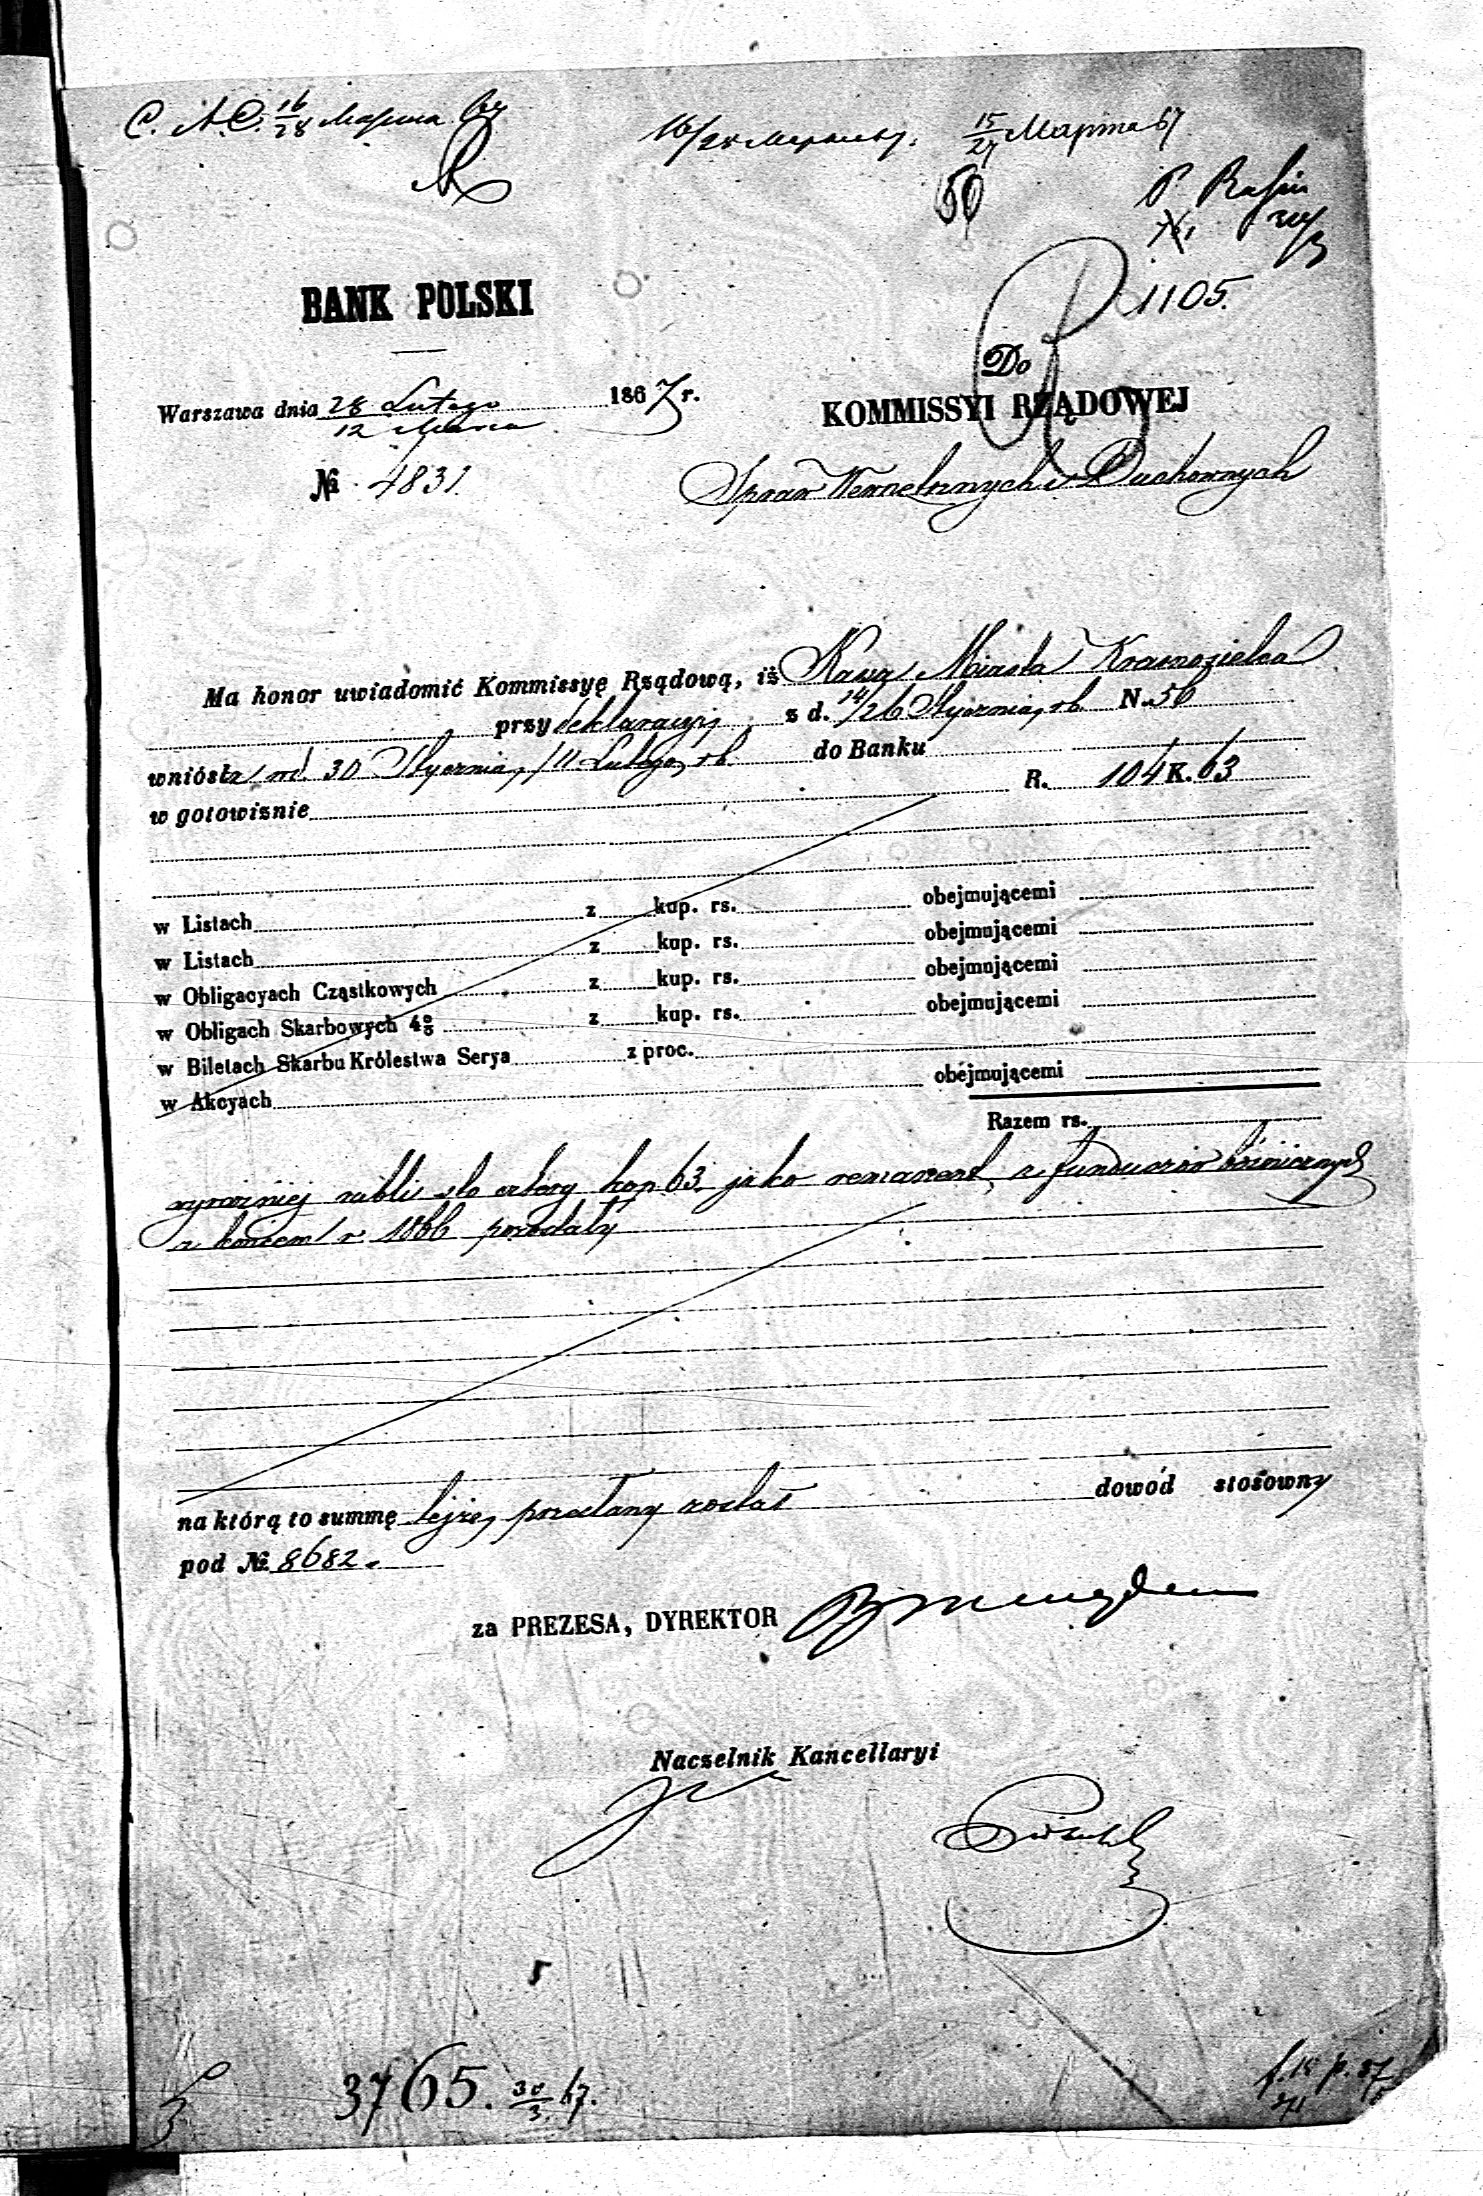 16/28 Марта 67
15/27 Марта 67
50
1105.
BANK POLSKI
Do
KOMMISSYI RZĄDOWEJ
Spraw Wewnętrznych i Duchownych
Warszawa dnia 28 Lutego / 12 Marca 1867 r.
№ 4831.
Ma honor uwiadomić Kommissyę Rządową, iż Kassa Miasta Krasnosielca
przy deklaracyi z d. 14/26 Stycznia, rb. N. 56
wniósła od 30 Stycznia, /11 Lutego, rb. do Banku
w gotowiznie R. 104 K. 63
w Listach z kup. rs. obejmującemi
w Listach z kup. rs. obejmującemi
w Obligacyach Cząstkowych z kup. rs. obejmującemi
w Obligach Skarbowych 4% z kup. rs. obejmującemi
w Biletach Skarbu Królestwa Serya z proc.
w Akcyach obejmującemi
Razem rs.
wyraźniej rubli sto cztery kop 63. jako remanent, z funduszów bóżniczych
z końcem r. 1866 pozostały
na którą to summę tejże, przesłany został dowód stosowny
pod № 8682.
za PREZESA, DYREKTOR
Naczelnik Kancellaryi
3765. 30/3 67.